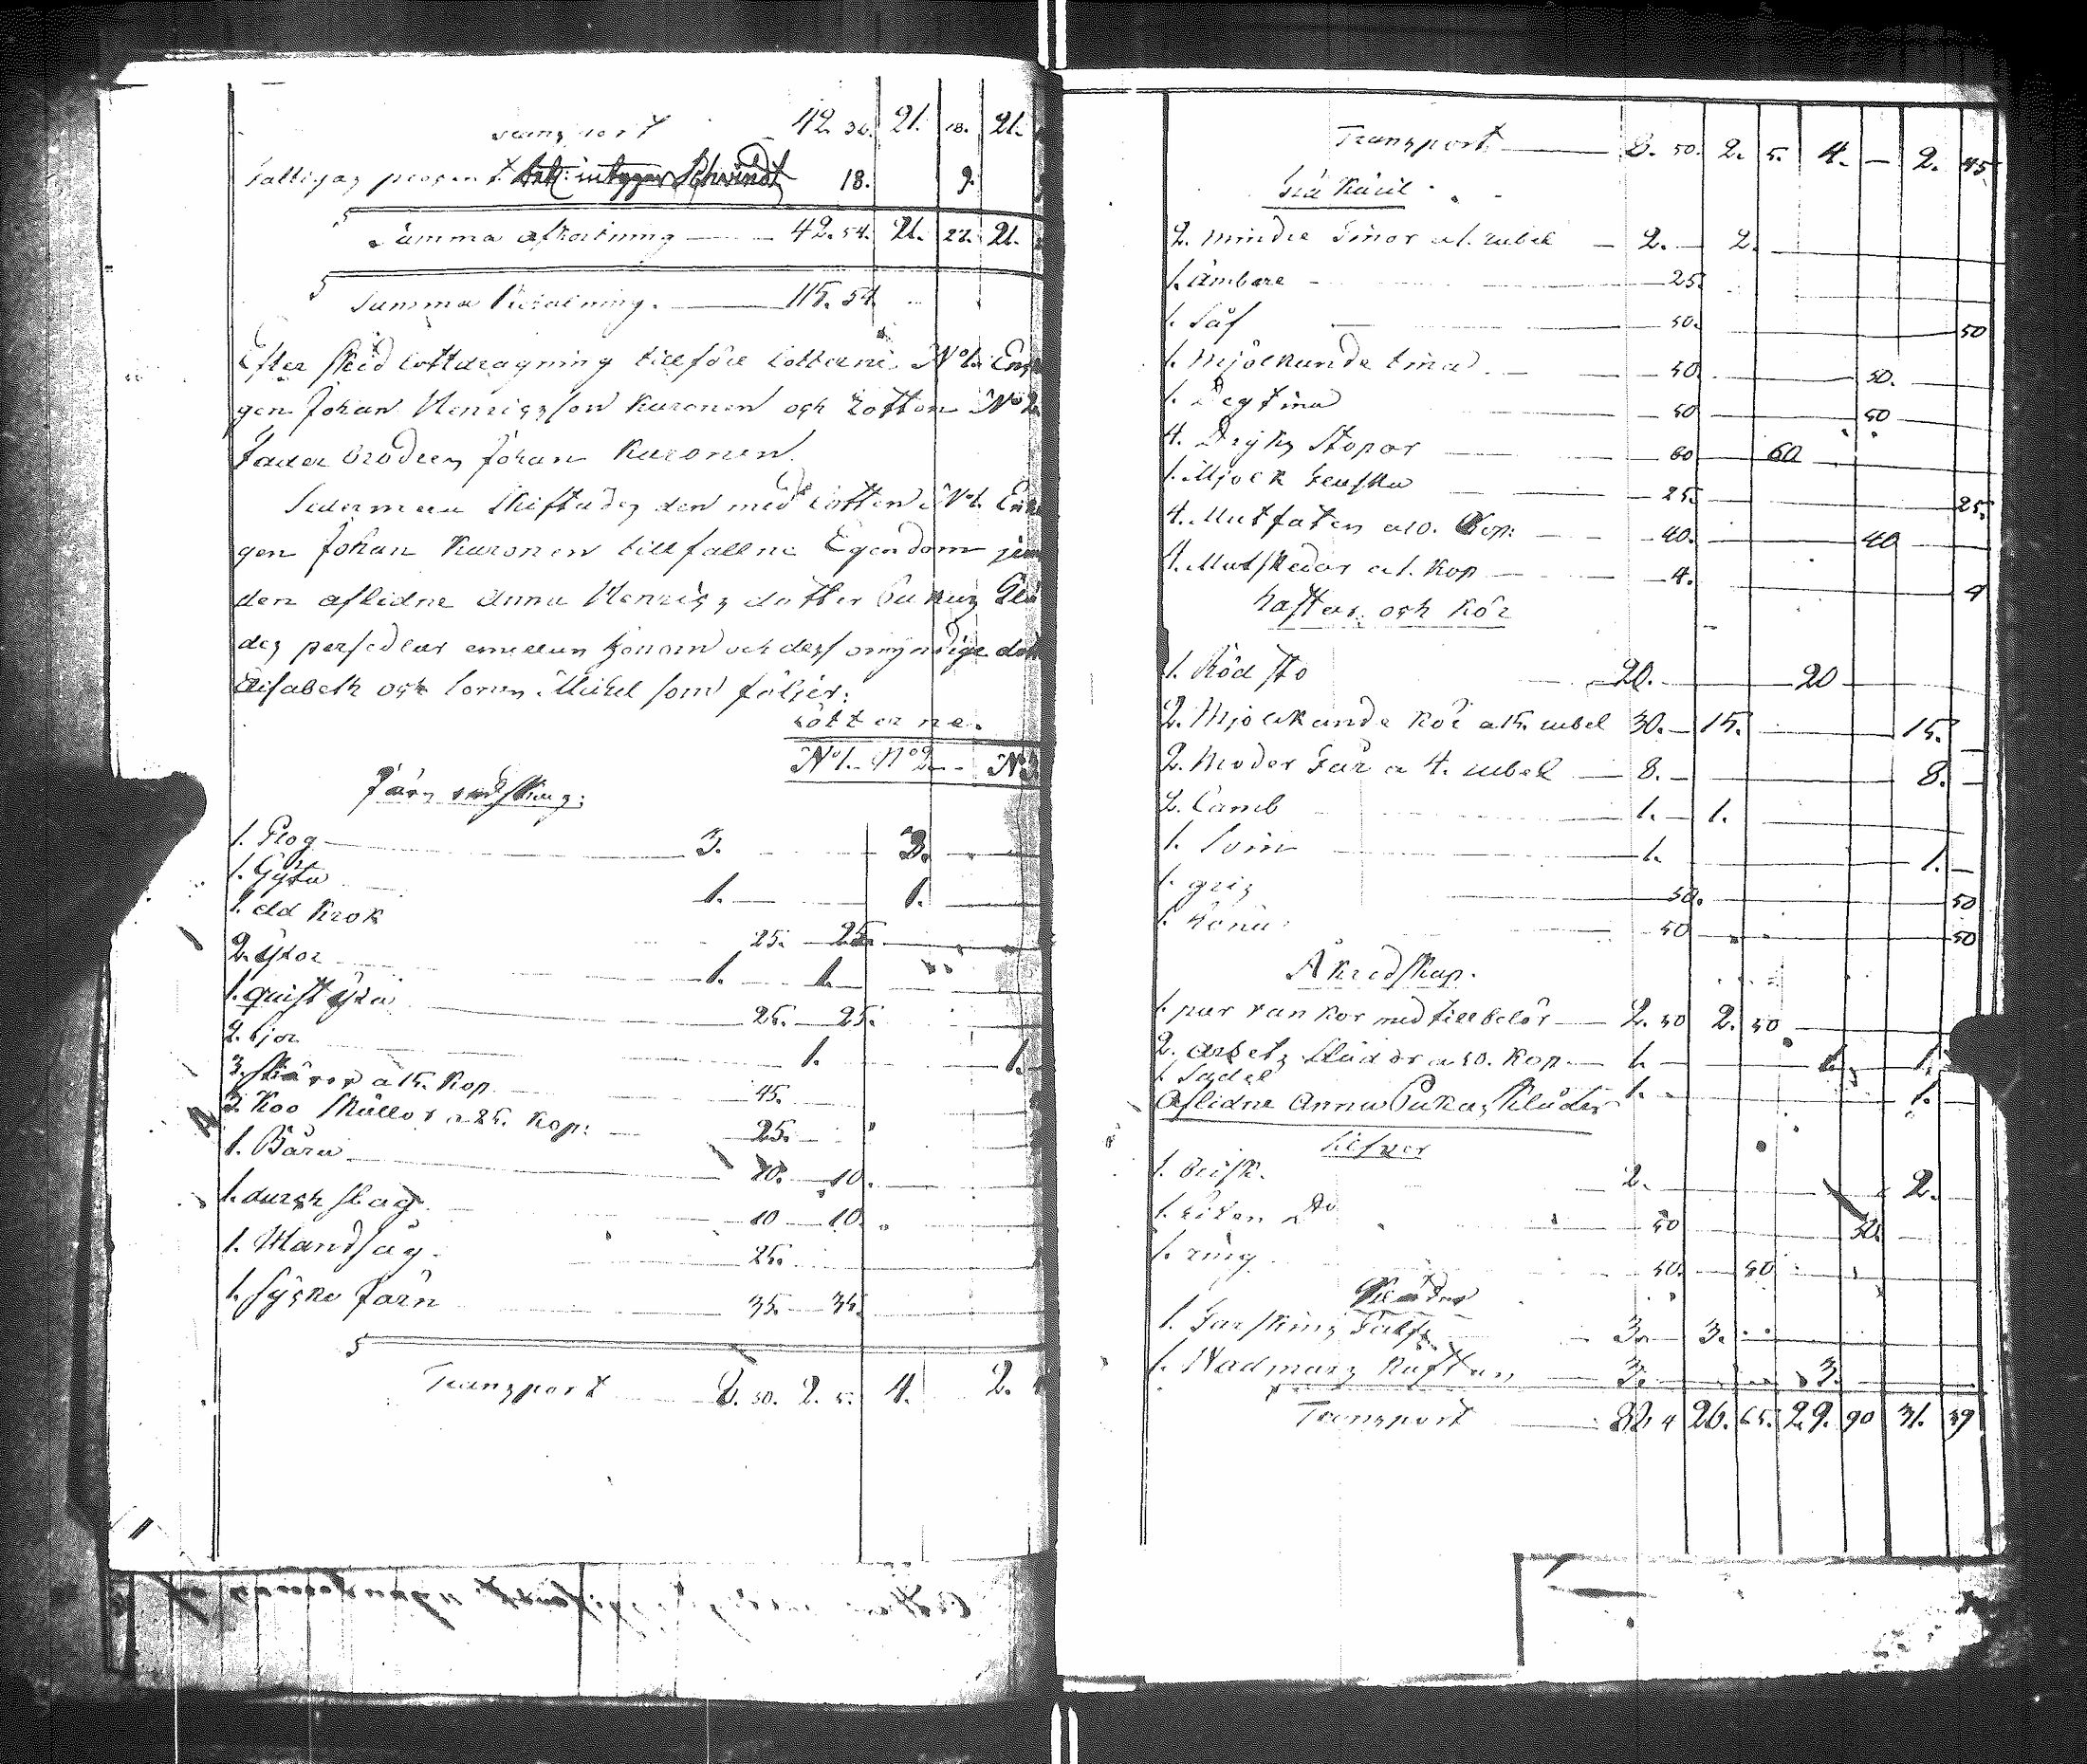 Transport 42. 36. 21. 18. 21.
Fattigas prosent 18. 9.
Summa afkortning 42. 54. 21. 27. 21.
Summa 115. 54
Efter skedd lottdragning tillföll lotterne N:o 1. Enk
gen Johan Henrigsson Karonen och Lotten N:o 2
Fader brodren Johan Karonen.
Sedermera skiftades den med Lotten N:o 1. Enk
gen Johan Karonen tillfallne Egendom jem
den aflidne Anna Henrigs dotter Pukas Klä
des persedlar emellan honom och dess omyndige dott
Elisabeth och sonen Mickel som följer:
Lotterne.
N:o 1. N:o 2. N:o 3
Järn redskap:
1. Plog 3. 3.
1. Gryta 1. 1.
1. eld krok 25. 25.
2. yxor 1. 1.
1. quist yxa 25. 25.
2. Ljor 1. 1.
3. skäror a 15. Kop 45.
3. Koo skällor a 25. Kop: 25.
1. Båra 10. 10.
1. durch slag 10 10.
1. Handsåg 25.
1. syske järn 35. 35
Transport 8. 50. 2. 5. 4. 2.
Transport 8. 50. 2. 5. 4. — 2. 45
Trä käril
2. mindre Tinor a 1. rubel 2. 2.
1. ämbare 25
1. Såf 50. 50
1. Mjölkande tina 50. 50.
1. Degtina 50 50
4. Dryks stopor 60 60
1. Mjölk 25. 25.
4. Matfaten a 10. Kop: 40. 40
4. Matskedar a 1. Kop 4. 4
hästar och Kör
1. Röd sto 20. 20
2. Mjölkande Kör a 15. rubel 30. 15. 15.
2. Moder Får a 4. rubel 8. 8.
2. Lamb 1. 1.
1. Svin 1. 1.
1. gris 50. 50
1. höna 50 50
Åkredskap.
1. par van kor med tillbelör 2. 50 2. 50
2. arbets slädor a 50. Kop. 1. 1.
1. Sadel 1. 1.
Aflidne Anna Pukas kläder
Silfver
1. Brisk. 2. 2.
1. liten D:o 50 50.
1. ring 50. 50
Kläder
1. Farskins 3. 3.
1. Wadmars kaftan 3. 3.
Transport 82. 4 26. 65. 29. 90 31. 39